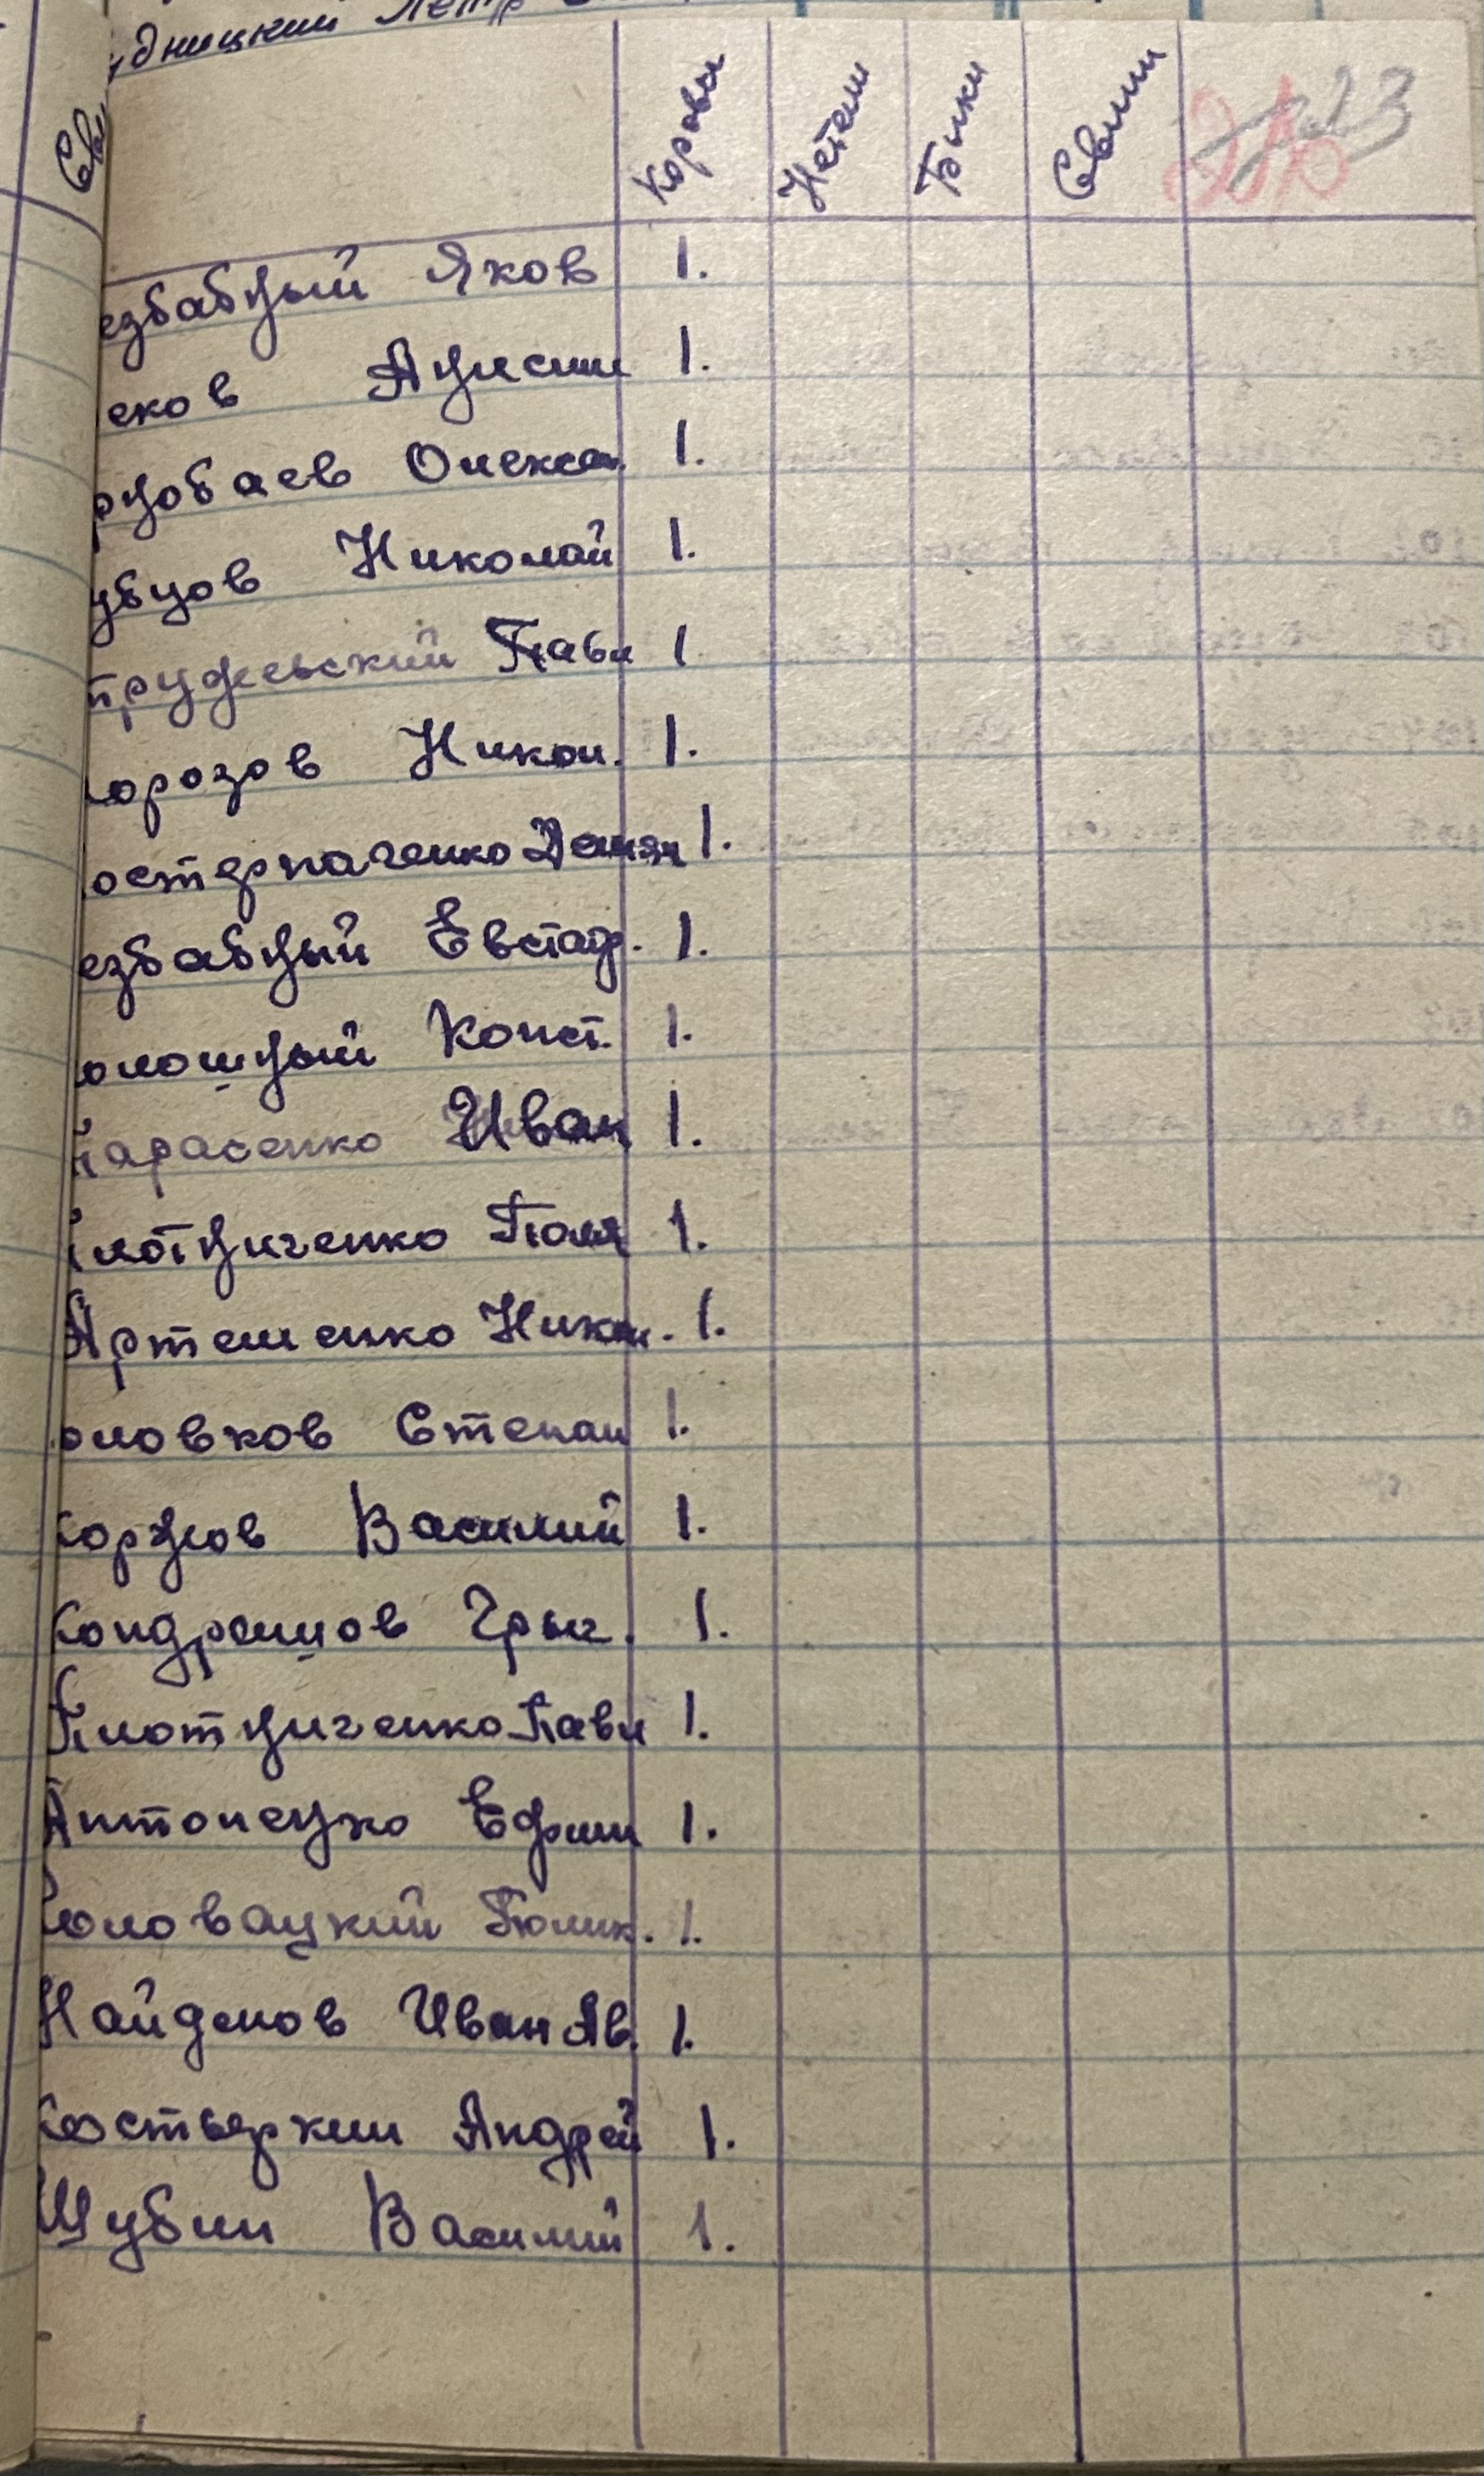 удницкий Петр
Коровы Нетели Быки Свиньи 23
езбабный Яков 1.
еков Анисим 1.
рнобаев Олекса. 1.
убцов Николай 1.
пружевский Павл 1
орозов Никол. 1.
остерначенко Демян 1.
езбабный Евстаф. 1.
олошный Конст. 1.
Тарасенко Иван 1.
лотниченко Поля 1.
Артеменко Никол. 1.
оловков Степан 1.
Коржов Василий 1.
Кондрашов Грыг. 1.
Плотниченко Павл 1.
Антоненко Ефим 1.
оловацкий 1.
Найденов Иван Яв. 1.
Костыркин Андрей 1.
Шубин Василий 1.